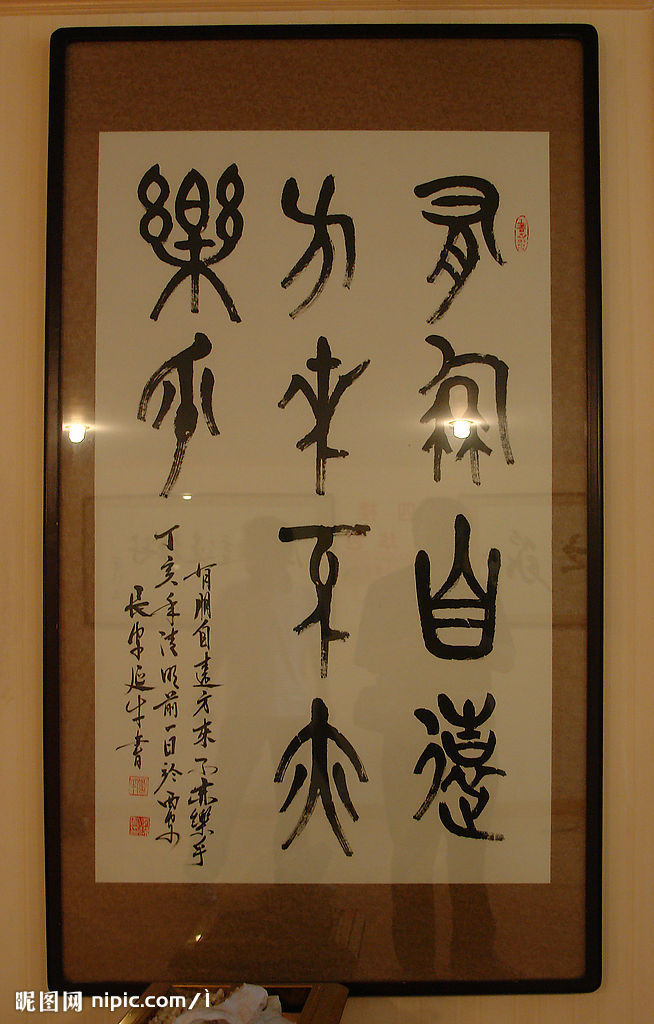 有朋自遠
方來不亦
樂乎
有朋自遠方來不亦樂乎
丁亥年清明前一日於西京
長安延生書
昵图网 nipic.com/ì